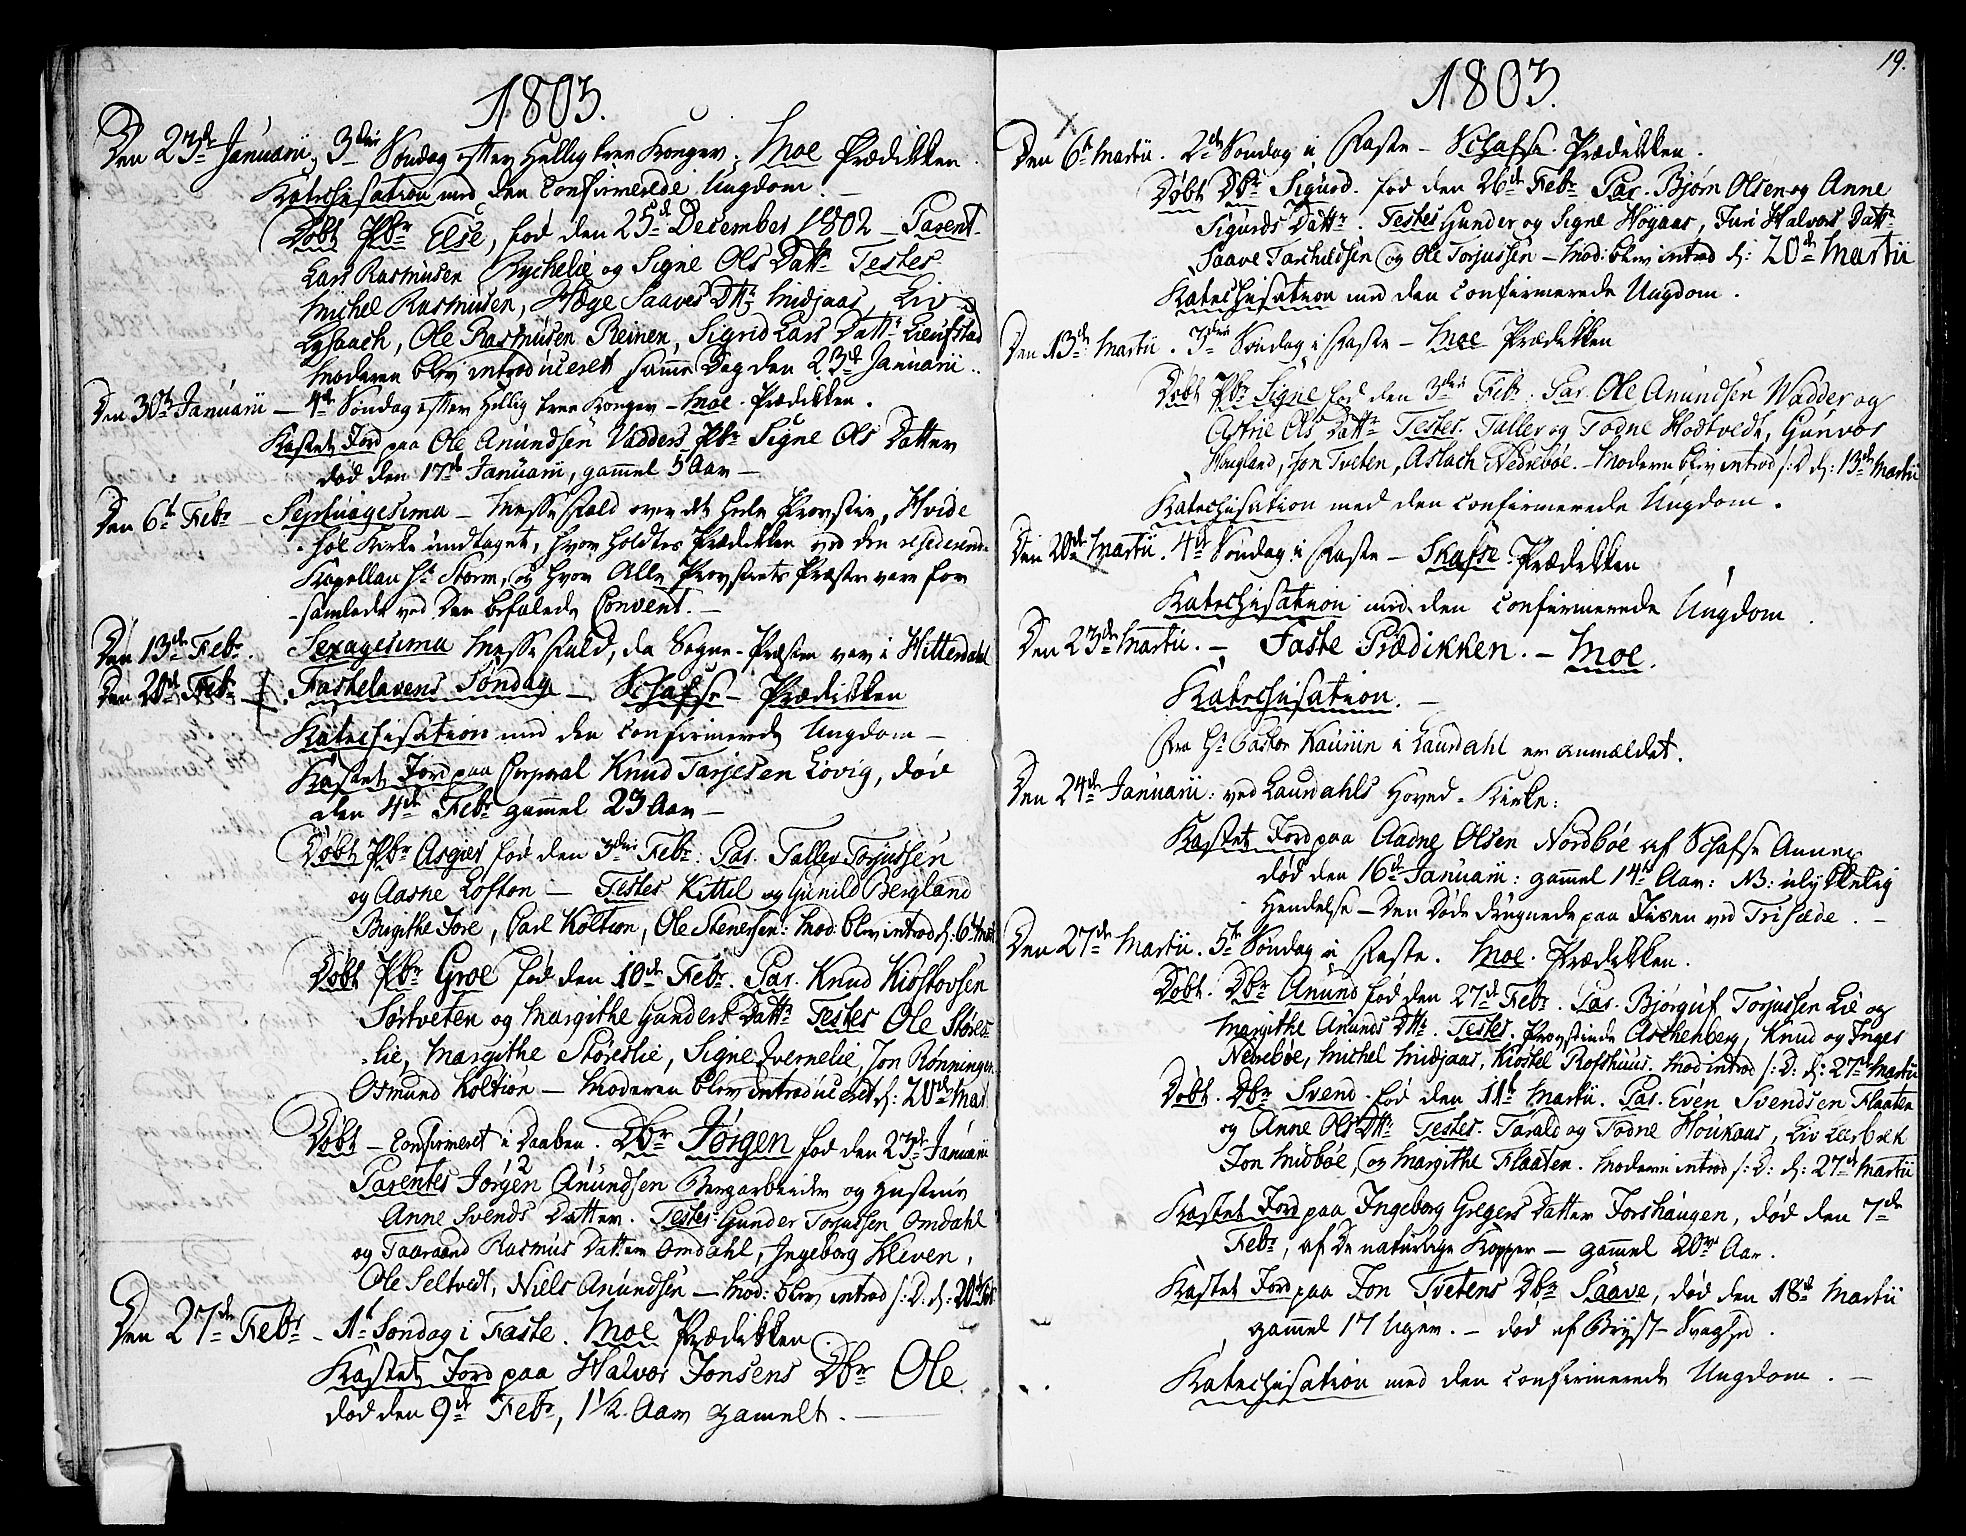 1803.
Den 23de Januarii, 3die Søndag efter Hellig tree Konger. Moe Prædikken.
Katechisation med den Confirmerede Ungdom. —
Døbt Pbr Else, fød den 25de December 1802 — Parent.
Lars Rasmusen Rychelie og Signe Ols Dattr Testes
Michel Rasmusen, Hæge Saaves Dttr Midjaas, Liv
Lysaach, Ole Rasmusen Reinen, Sigrid Lars Dattr Lieufstad
Moderen blev introduceret samme Dag den 23de Januarii.
Den 30te Januarii — 4de Søndag efter Hellig tree Konger — Moe. Prædikken.
Kastet Jord paa Ole Anundsen Vadders Pbr Signe Ols Datter
død den 17de Januarii, gammel 5 Aar —
Den 6te Febr — Septuagesima — Messe Fald over det hele Provstie, Hvide
-søe Kirke undtaget, hvor holdtes Prædikken ved den residerende
Kapellan Hr Storm, og hvor Alle Provstiets Præster vare for
-samlede ved Den befalede Convent. —
Den 13de Febr. Sexagesima Messe Fald, da Sogne-Præsten var i Hitterdahl
Den 20de Febr Fastelavens Søndag — Schafse — Prædikken
Katechisation med den confirmerede Ungdom —
Kastet Jord paa Corporal Knud Tarjesen Løvig, død
den 4de Febr gammel 23 Aar —
Døbt Pbr Asgier fød den 3die Febr: Par. Tallev Torjussen
og Aasne Lofton — Testes Kittil og Gunild Bergland
Birgithe Fore, Carl Koltion, Ole Stenersen: Mod: blev introd d: 6t Mart
Døbt Pbr Groe fød den 10de Febr. Par. Knud Kiostovsen
Sørtveten og Margithe Gunders Dattr Testes Ole Støres-
-lie, Margithe Støreslie, Signe Ivernelie, Jon Rønningen
Osmund Koltion — Moderen blev introduceret d: 20de Mar
Døbt — Confirmeret i Daaben. Dbr Jørgen fød den 23de Januarii
Parentes Jørgen Anundsen Bergarbeider og Hustrue
Anne Svends Datter. Testes Gunder Torjussen Omdahl
og Taaraand Rasmus Datter Omdahl, Ingeborg Kleven,
Ole Seltvedt, Niels Anundsen — Mod: blev introd s: D. d: 20de Feb
Den 27de Febr — 1t Søndag i Faste. Moe Prædikken
Kastet Jord paa Halvor Jonsens Dbr Ole
død den 9de Febr, 1 1/2 Aar gamelt. —
19.
1803.
Den 6t Martii. 2de Søndag i Faste — Schafse. Prædikken.
Døbt Dbr Sigurd. fød den 26de Febr Par. Bjørn Olsen og Anne
Sigurds Dattr. Testes Gunder og Signe Høgaas, Juri Halvors Dattr
Saave Tarchildsen og Ole Torjussen — Mod: blev introd d: 20de Martii
Katechisation med den Confirmerede Ungdom.
Den 13de Martii. 3die Søndag i Faste — Moe Prædikken
Døbt Pbr Signe fød den 3die Febr: Par. Ole Anundsen Vadder og
Astrie Ols Dattr. Testes. Taller og Todne Hodtvedt, Gunvor
Haugland, Jon Tveten, Aslach Nedrebøe. — Moderen blev introd s: D d: 13de Martii
Katechisation med den confirmerede Ungdom.
Den 20de Martii. 4de Søndag i Faste — Skafse. Prædikken
Katechisation med den confirmerede Ungdom.
Den 23de Martii. — Faste Prædikken. — Moe.
Katechisation. —
Fra Hr Pastor Kaurin i Laurdahl er anmældet.
Den 24de Januarii: ved Laurdahls Hoved-Kirke:
Kastet Jord paa Aadne Olsen Nordbøe af Schafse Annex
død den 16de Januarii: gammel 14de Aar: NB: ulykkelig
Hendelse — Den Døde drugnede paa Iisen ved Trisæde. —
Den 27de Martii. 5te Søndag i Faste. Moe. Prædikken.
Døbt. Dbr Anund fød den 27de Febr. Par. Bjørguf Torjussen Lie og
Margithe Anunds Dttr. Testes. Provstinde Aschenberg, Knud og Inger
Nedrebøe, Michel Midjaas, Kiøstel Rofshuus. Mod introd s: D: d: 27de Martii
Døbt. Dbr Svend. fød den 11t Martii. Par. Even Svendsen Flaaten
og Anne Ols Dttr Testes. Tarald og Todne Houkaas, Liv Lerbek
Jon Midbøe, og Margithe Flaaten. Moderen introd s: D: d: 27de Martii
Kastet Jord paa Ingeborg Gregers Datter Forshaugen, død den 7de
Febr, af De naturlige Kopper — gammel 20ve Aar.
Kastet Jord paa Jon Tvetens Dbr Saave, død den 18de Martii
gammel 17 Uger. — død af Bryst-Svaghed.
Katechisation med den Confirmerede Ungdom. —